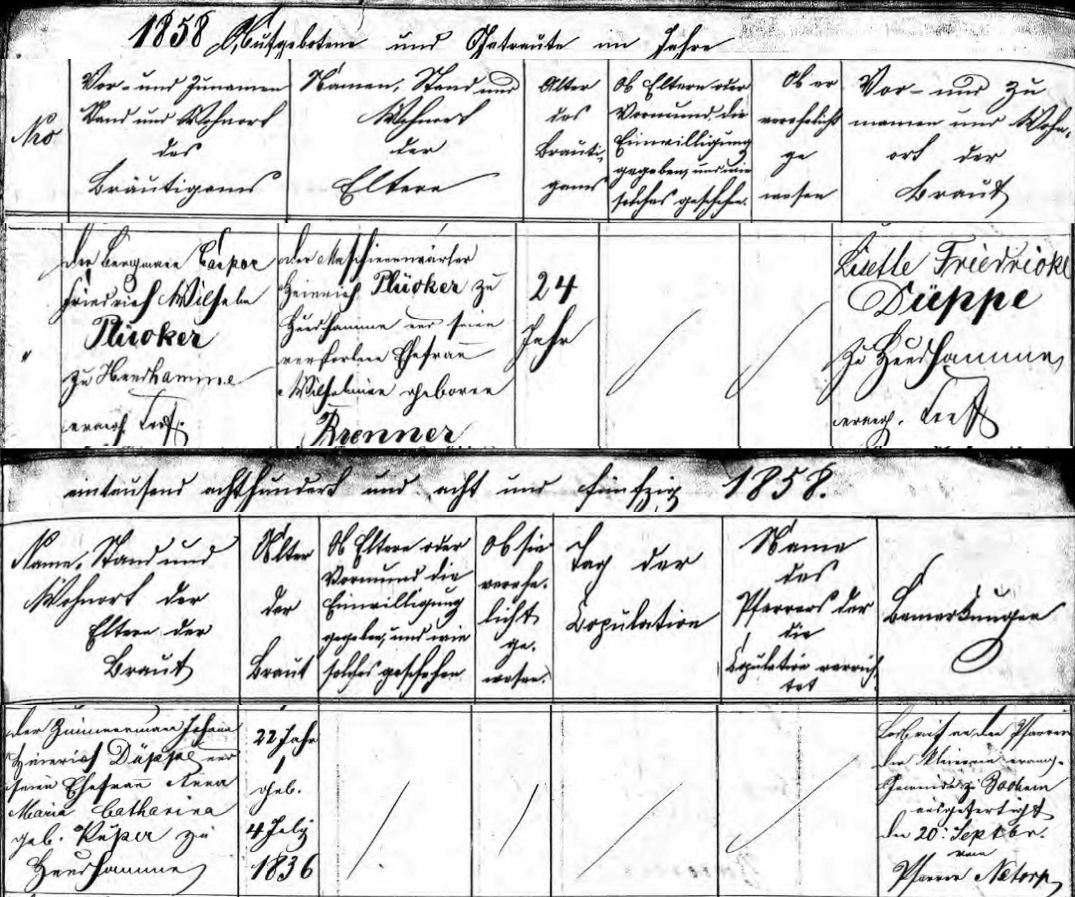 1858 Aufgebotene und Getraute im Jahre
Nro
Vor- und Zunamen
Stand und Wohnort
des
Bräutigams
Namen, Stand und
Wohnort
der
Eltern
Alter
des
Bräuti-
gams
Ob Eltern oder
Vormund die
Einwilligung
gegeben, und wie
solches geschehen.
Ob er
verehelicht
ge
wesen
Vor- und Zu
namen und Wohn-
ort der
Braut
"
der Bergmann Caspar
Friedrich Wilhelm
Plücker
zu
evangl.
der Maschienenwärter
Heinrich Plücker zu
und seine
verstorbene Ehefrau
Wilhelmine geborene
Brenner
24
Jahr
Lisette Friedricke
Düppe
zu
evangl.
eintausend achthundert und acht und fünfzig 1858.
Name, Stand und
Wohnort der
Eltern der
Braut
Alter
der
Braut
Ob Eltern oder
Vormund die
Einwilligung
gegeben, und wie
solches geschehen.
Ob sie
verehe-
licht
ge-
wesen.
Tag der
Copulation
Name
des
Pfarrers der
die
Copulation verrich
tet
Bemerkungen
der Zimmermann Johann
Heinrich Düppe und
seine Ehefrau Anna
Maria Catharina
geb. Küper zu
22 Jahr
geb.
4 July
1836
an den Pfarrer
der evang.
Gemeinde z. Bochum
ausgefertigt
den 20. Septbr.
von
Pfarrer Natorp